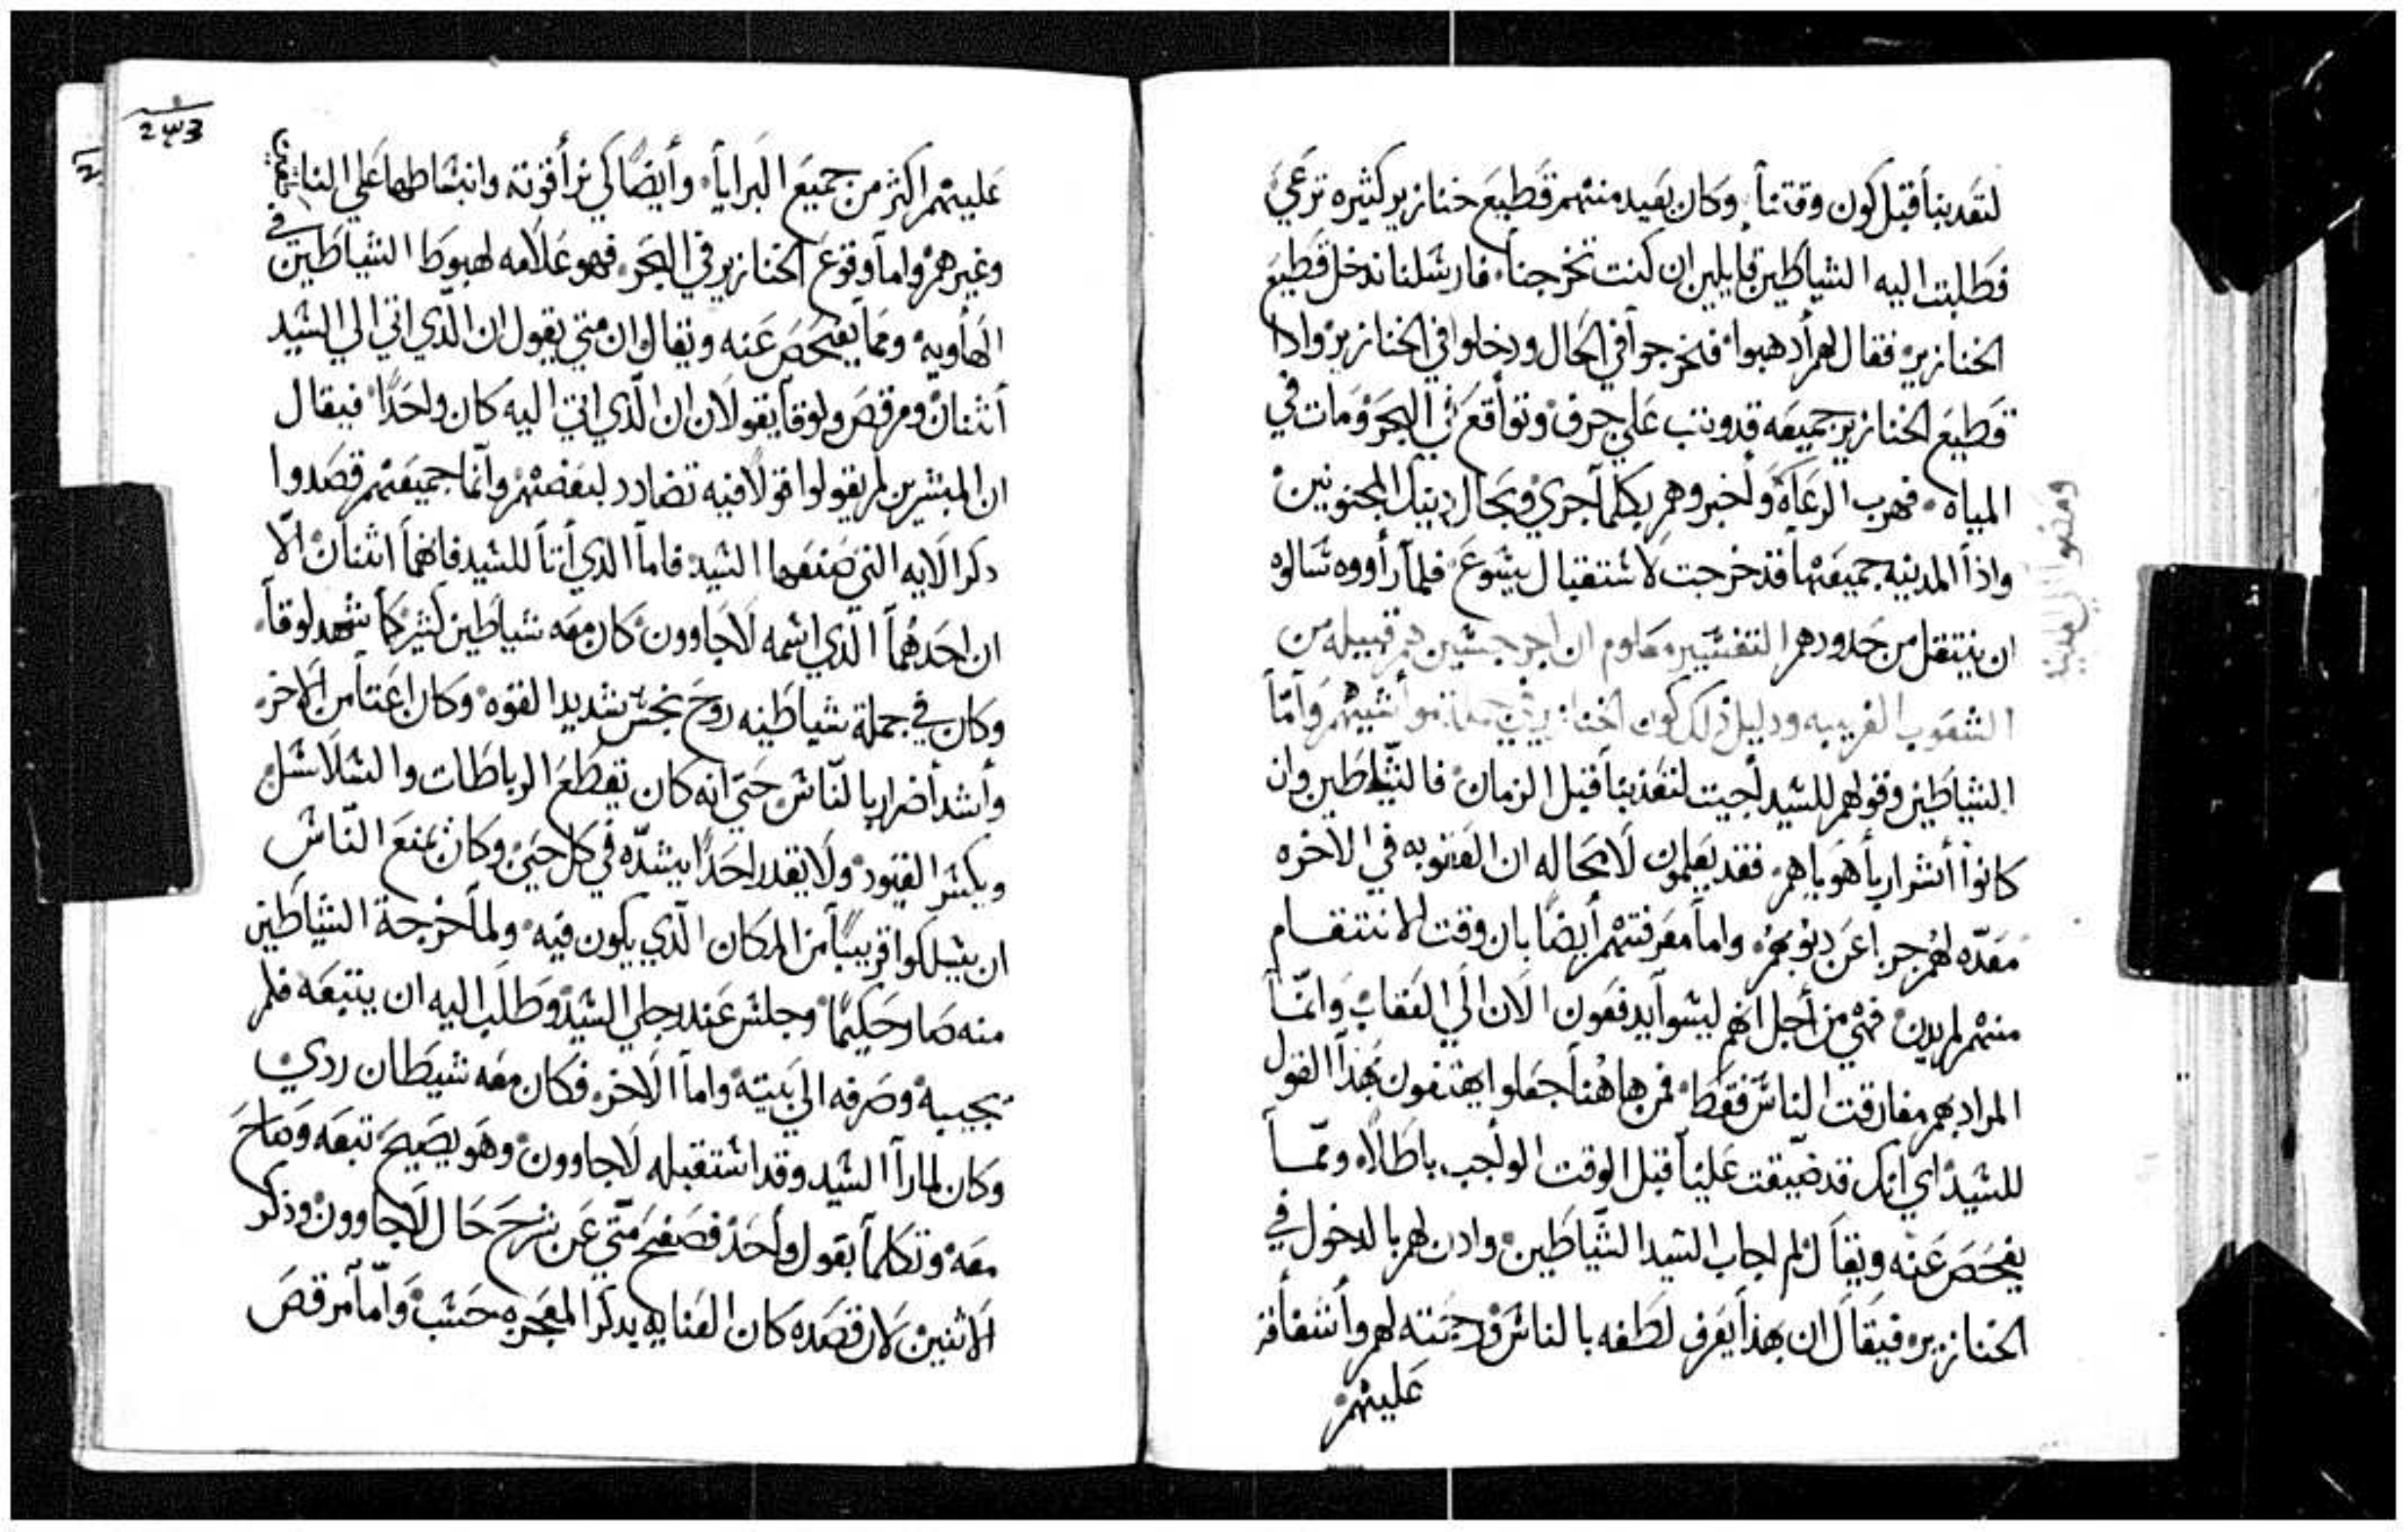 لتعدبنا قبل كون وقتنا. وكان بعيد منهم قطيع خنازير كثيره ترعي
فطلبت اليه الشياطين قايلين ان كنت تخرجنا. فارسلنا ندخل قطيع
الخنازير. فقال لهم أدهبوا فخرجوا في الحال ودخلوا في الخنازير وادا
قطيع الخنازير جميعه قد وتب علي جرف وتواقع في البحر ومات في
المياه. فهرب الرعاة وأخبروهم بكلما جري وبحال دينك المجنونين
واذا المدينه جميعها قد خرجت لاستقبال يسوع. فلما رأووه سالوه
ان ينتقل من حدودهم التفسير معلوم ان الجرجسين هم قبيله من
الشعوب الغريبه ودليل ذلك كون الخنازير في مواشيهم وأما
الشياطين وقولهم للسيد أجيت لتعذبنا قبل الزمان. فالشياطين وان
كانوا أشرار بأهوياهم. فقد يعلمون لا محاله ان العقوبه في الاخره
معدّه لهم جزا عن دنوبهم. واما معرفتهم أيضًا بان وقت الانتقام
منهم لم يدن. فهي من أجل انهم ليسوا يدفعون الان الي العقاب وانما
المراد بهم مفارقت الناس فقط. فمن هاهنا جعلوا يهتفون بهذا القول
للسيد اي انك قد ضيقت علينا قبل الوقت الواجب باطالاً. وممّا
يفحص عنه ويقال لم اجاب السيد الشياطين. وادن لهم بالدخول في
الخنازير. فيقال ان بهذا يعرف لطفه بالناس ورحمته لهم وأشفاقه
عليهم
ومضوا الي المدينة
عليهم اكثر من جميع البرايا. وأيضًا لكي نرا قوته وانبساطها علي الناس
وغيرهم. واما وقوع الخنازير في البحر. فهو علامه لهبوط الشياطين في
الهاويه. ومما يفحص عنه ويقال ان متي يقول ان الّذي اتي الي السيد
أثنان ومرقص ولوقا يقولان ان الّذي اتي اليه كان واحدًا. فيقال
ان المبشرين لم يقولوا قولاً فيه تضادد لبعضهم وانّما جميعهم قصدوا
دكر الايه التي صنعها السيد. فاما الدي أتا للسيد فانهما اثنان الّا
ان احدهما الّدي اسمه لاجاوون. كان معه شياطين كثير كما شهد لوقا.
وكان في جملة شياطينه روح نجس شديد القوه. وكان اعتا من الاخر.
وأشد أضرار بالنّاس حتي انه كان يقطع الرباطات والسلاسل
ويكسر القيود. ولا يقدر احدًا يشدّه في كل حين. وكان يمنع النّاس
ان يسلكوا قريبًا من المكان الّدي يكون فيه. ولما خرجة الشياطين
منه صار حكيمًا. وجلس عند رجلي السيد. وطلب اليه ان يتبعه فلم
يجيبه وصرفه الي بيته. واما الاخر. فكان معه شيطان ردي
وكان لمارا السيد وقد استقبله لاجاوون وهو يصيح تبعه وصاح
معه وتكلما بقول واحد. فصفح متي عن شرح حال لاجاوون وذكر
الاثنين. لان قصده كان العنايه بدكر المعجزه حسب. وأما مرقص